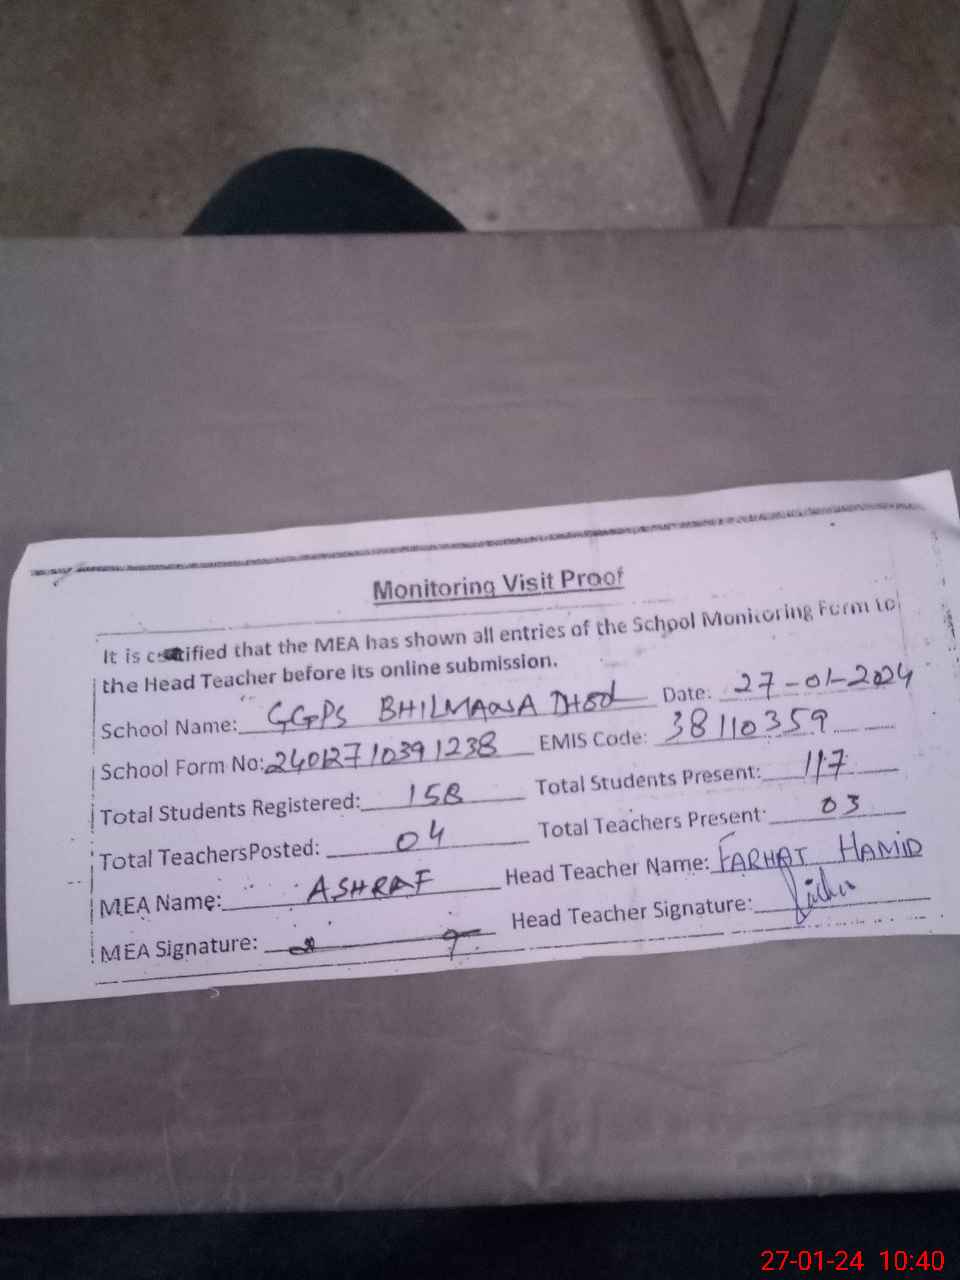 Monitoring Visit Proof
It is certified that the MEA has shown all entries of the School Monitoring Form to
the Head Teacher before its online submission.
School Name: GGPS BHILMAWA DHOOL Date: 27-01-2024
School Form No: 24012710391238 EMIS Code: 38110359
Total Students Registered: 158 Total Students Present: 117
Total TeachersPosted: 04 Total Teachers Present: 03
MEA Name: ASHRAF Head Teacher Name: FARHAT HAMID
MEA Signature: Head Teacher Signature:
27-01-24 10:40